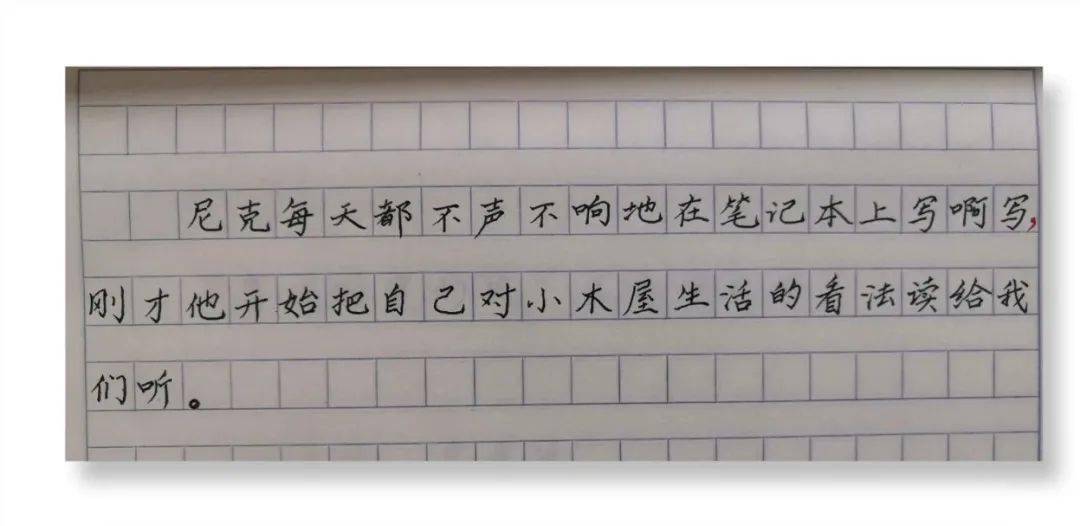 尼克每天都不声不响地在笔记本上写啊写,
刚才他开始把自己对小木屋生活的看法读给我
们听。